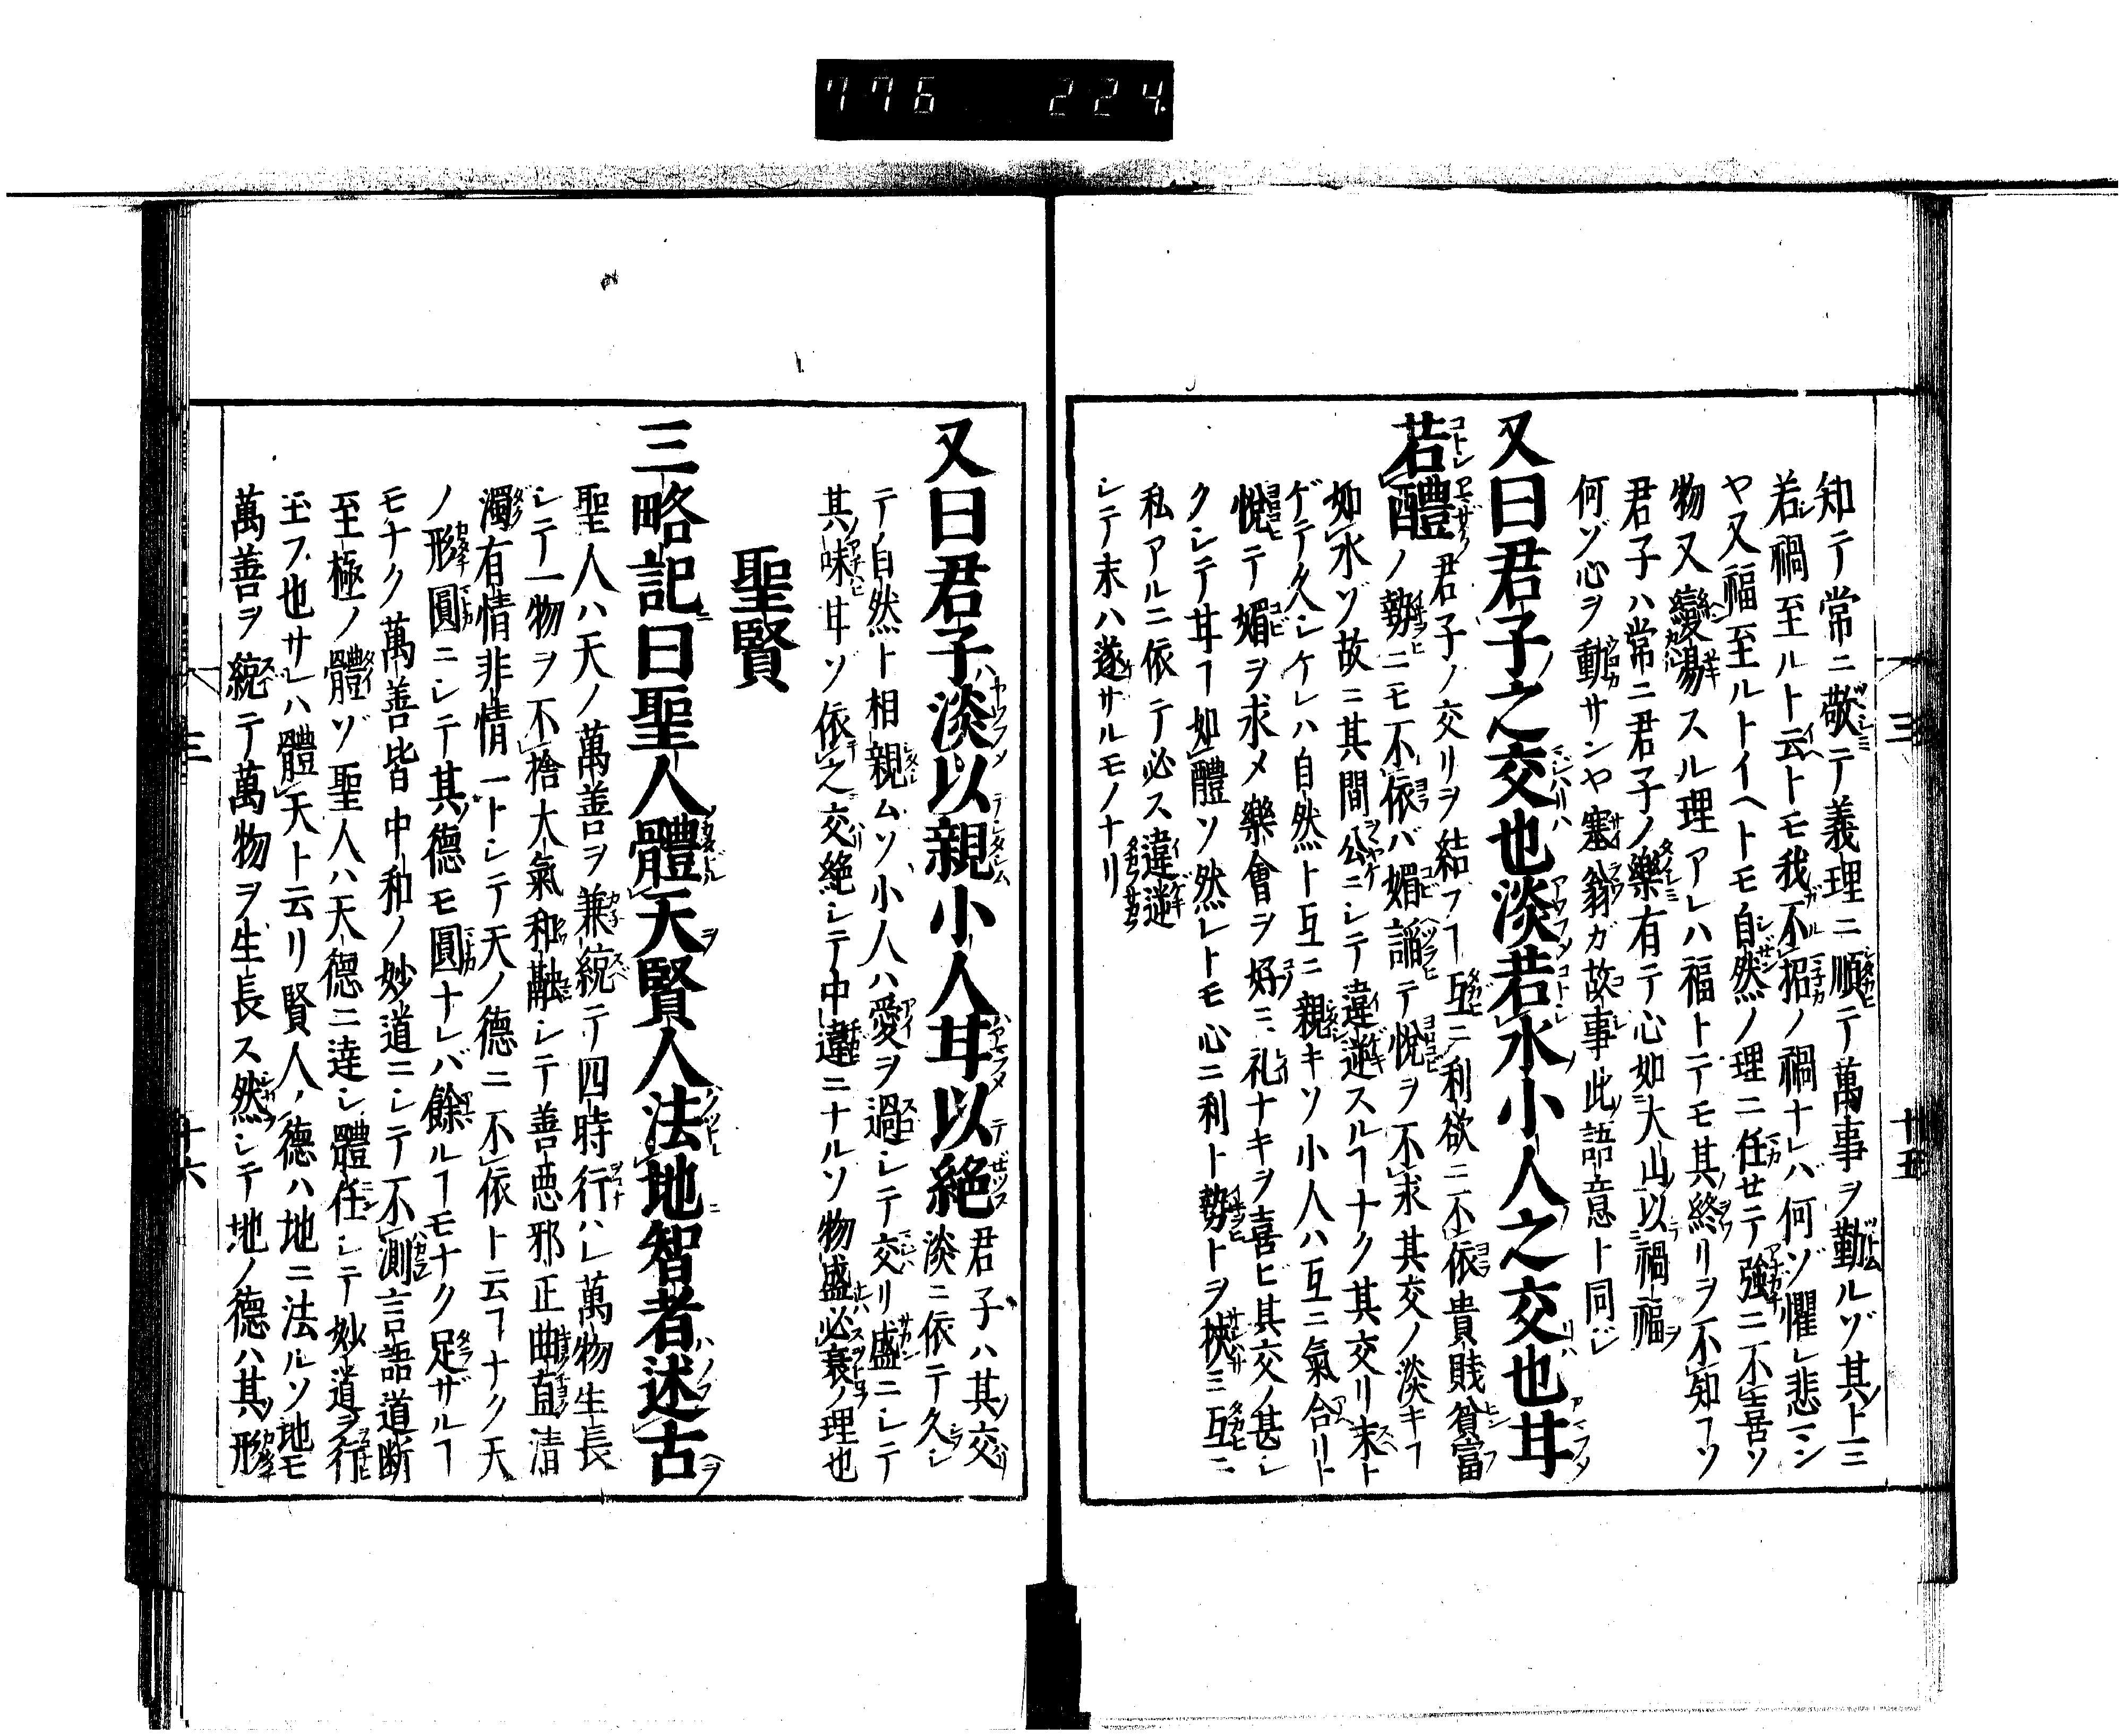 776 224
三 十五
知テ常ニ敬テ義理ニ順テ萬事ヲ勤ルゾ其上ニ
若禍至ルト云トモ我不招ノ禍ナレバ何ゾ懼レ悲マン
ヤ又福至ルトイヘトモ自然ノ理ニ任せテ強ニ不喜ソ
物又變易スル理アレハ福トテモ其終リヲ不知ヿソ
君子ハ常ニ君子ノ樂有テ心如大山以禍福
何ゾ心ヲ動サンヤ塞翁ガ故事此語意ト同レ
又曰君子之交也淡若水小人之交也甘
若醴
君子ノ交リヲ結ブヿ互ニ利欲ニ不依貴賎貧富
ノ勢ニモ不依バ媚謟テ悅ヲ不求其交ノ淡キヿ
如水ゾ故ニ其間公ニシテ違逆スルヿナク其交リ末ト
ゲテ久シケレハ自然ト互ニ親キソ小人ハ互ニ氣合リト
悅テ媚ヲ求メ樂會ヲ好ミ礼ナキヲ喜ビ其交ノ甚シ
クシテ甘ヿ如醴ソ然レトモ心ニ利ト勢トヲ挾ミ互ニ
私アルニ依テ必ス違逆
シテ末ハ遂サルモノナリ
又曰君子淡以親小人甘以絶
君子ハ其交
淡ニ依テ久シ
テ自然ト相親ムソ小人ハ愛ヲ過シテ交リ盛ニシテ
其味甘ゾ依之交絶シテ中違ニナルソ物盛必衰ノ理也
聖賢
三略記曰聖人體天賢人法地智者述古
聖人ハ天ノ萬善ヲ兼統テ四時行ハレ萬物生長
シテ一物ヲ不捨大氣和融シテ善惡邪正曲直清
濁有情非情一トシテ天ノ德ニ不依ト云ヿナク天
ノ形圓ニシテ其德モ圓ナレバ餘ルヿモナク足ザルヿ
モナク萬善皆中和ノ妙道ニシテ不測言語道断
至極ノ體ゾ聖人ハ天德ニ達シ體任シテ妙道ヲ行
玉フ也サレハ體天ト云リ賢人ノ德ハ地ニ法ルソ地モ
萬善ヲ統テ萬物ヲ生長ス然シテ地ノ德ハ其形
三 十六